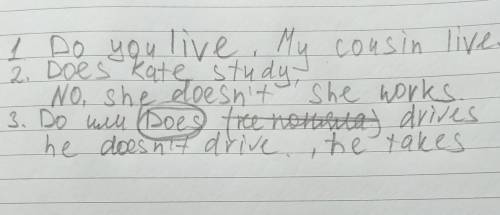 1 Do you live. My cousin live.
2. Does Kate study,
No, she doesn't she works
3. Do или Does (не поняла) drives
he doesn't drive., he takes